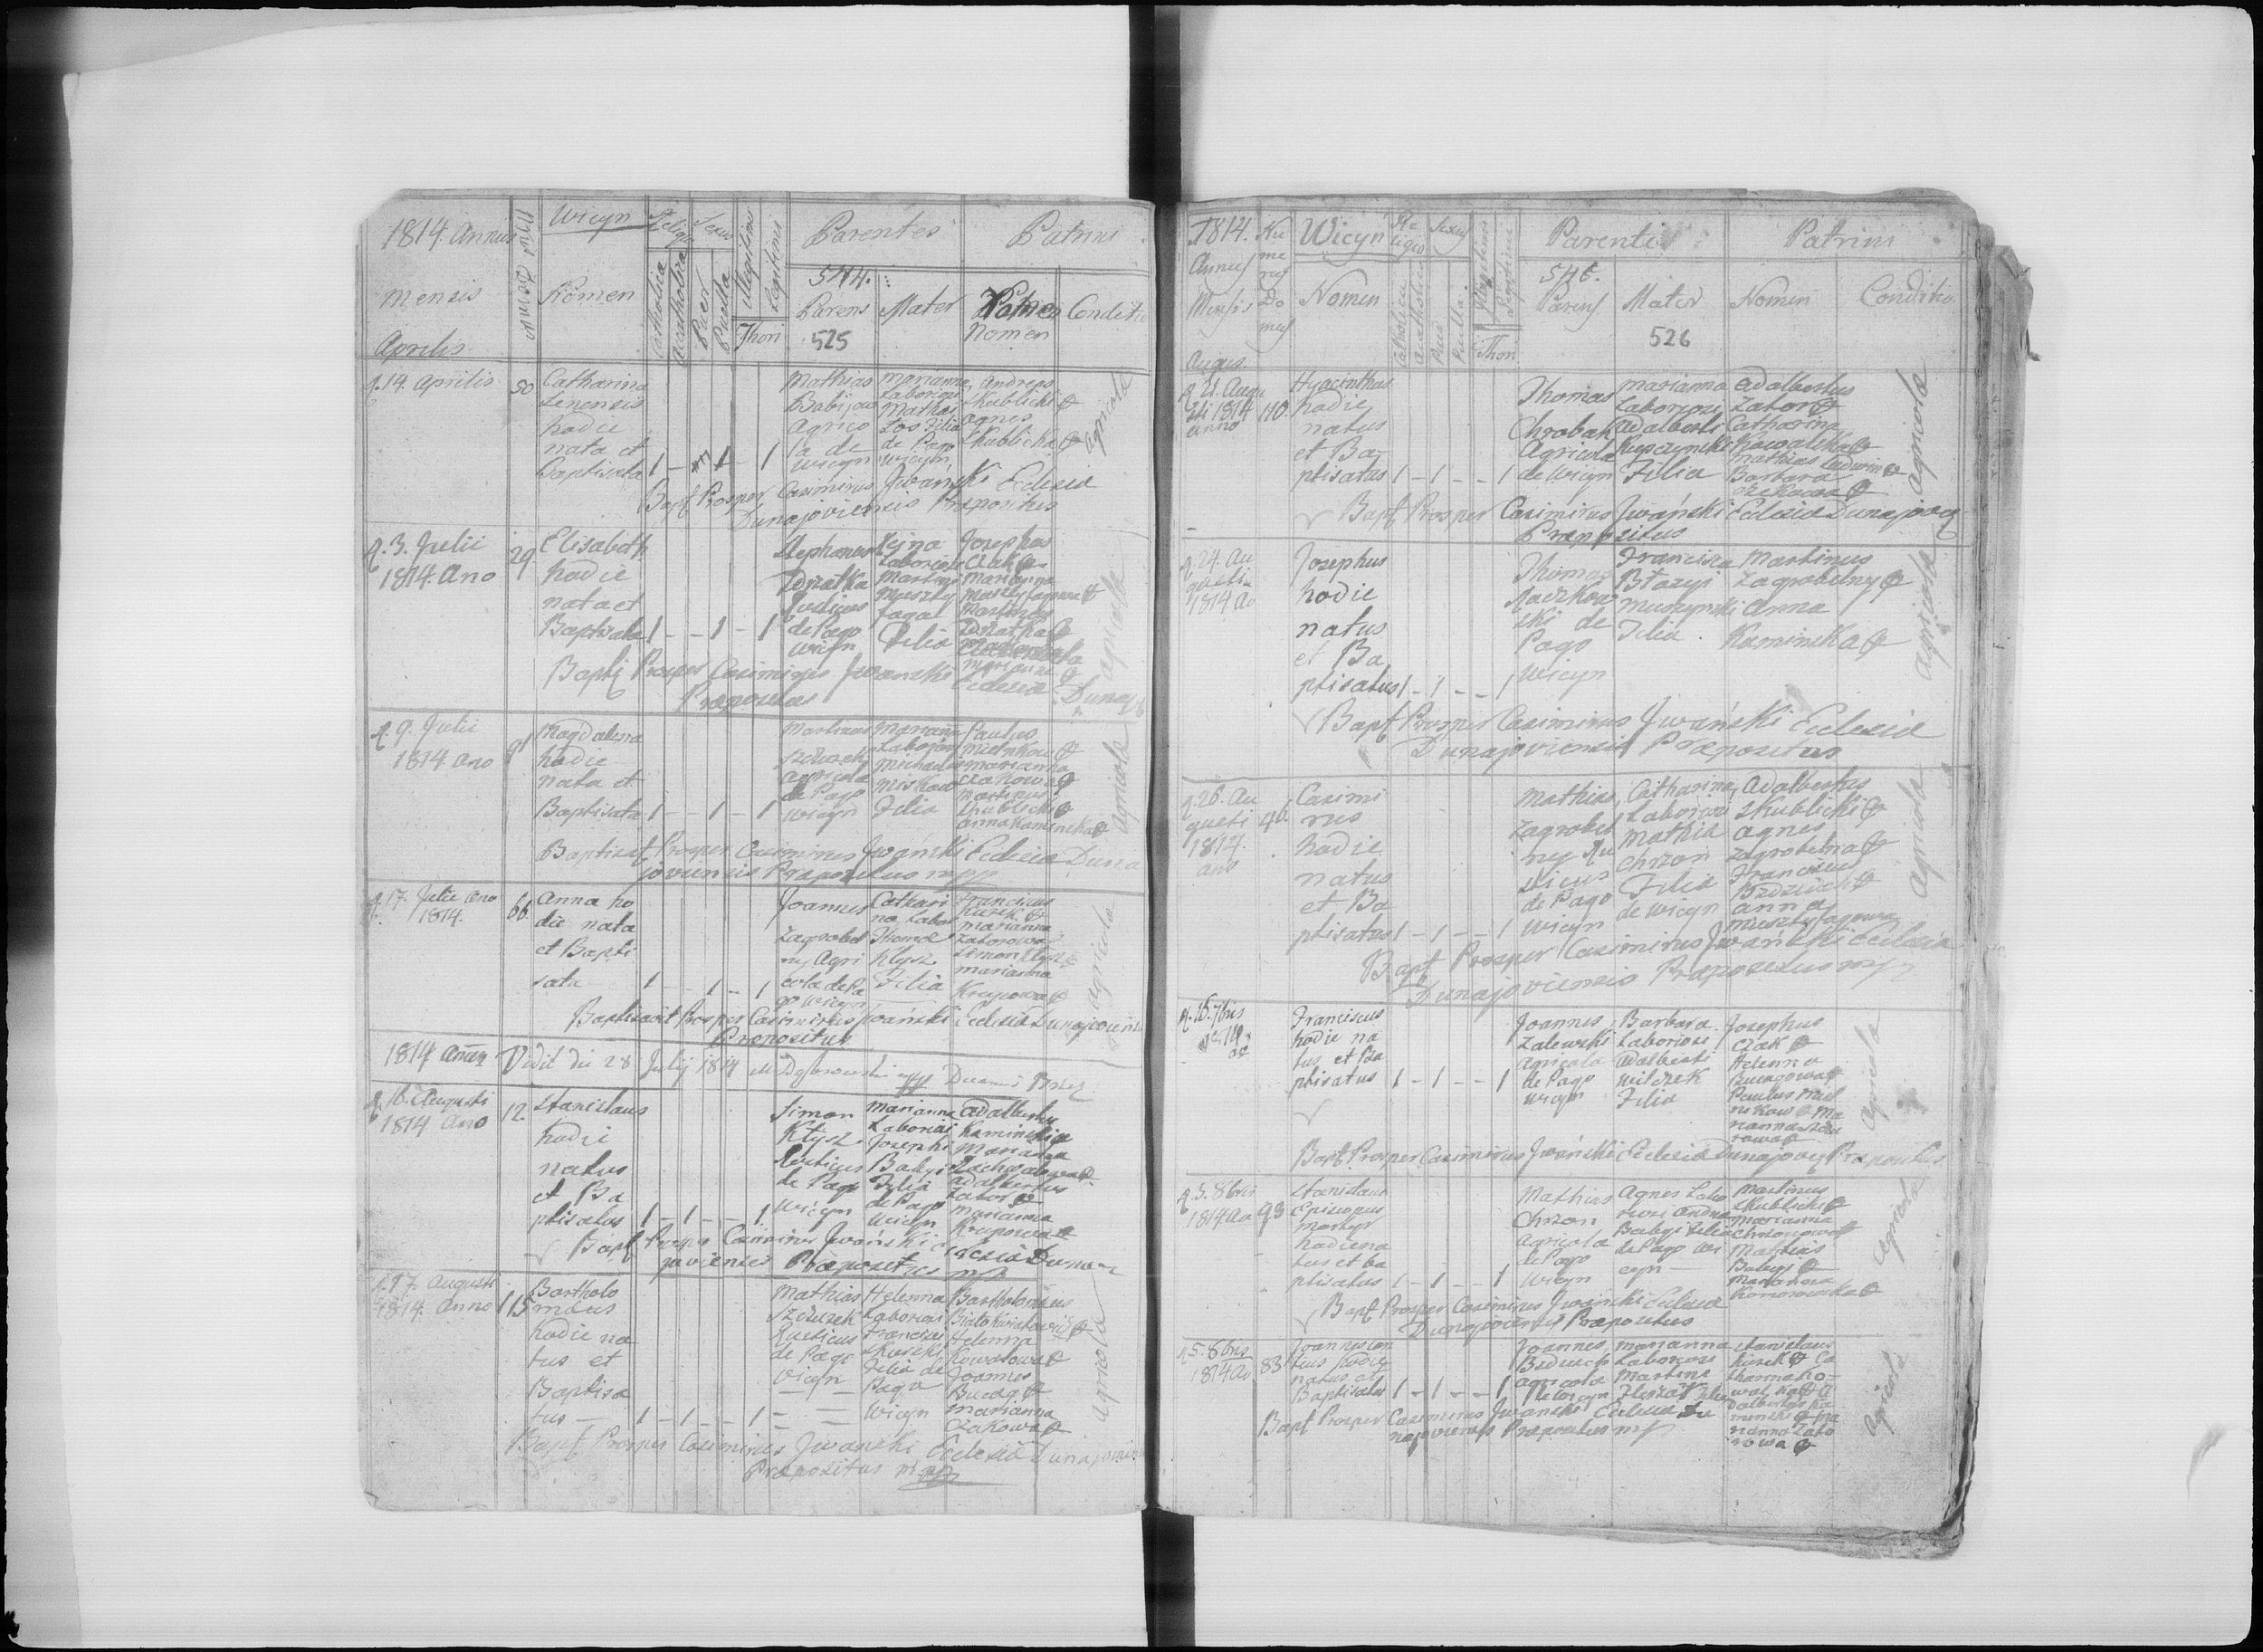 1814. Annus
Wicyn
Religio
Sexus
Illegitimi
Legitimi
Parentes
Patrini
Mensis
Nrus Domus
Nomen
Catholica
Acatholica
Puer
Puella
Thori
544.
Parens
Mater
Nomen
Conditio
525
Aprilis
14. Aprilis
50
Catharina
Senensis
hodie
nata et
Baptisata
1 - 1 - 1
Mathias
Babij
Agrico
la de
Wicyn
Marianna
Laboriosi
Mathei
Los Filia
de Pago
Wicyn
Andreas
Skublicki
Agnes
Skublicka
Agricola
Bapt Prosper Casimirus Jwański Eclesia
Dunajoviensis Præpositus
3. Julii
1814. Ano
29.
Elisabeth
hodie
nata et
Baptisata
1 - - 1 - 1
Stephanus
Dziatka
Rusticus
de Pago
Wicyn
Rejna
Laboriosi
Martini
Filia
Josephus
Czak
Marianna
Martinus
Dziatka
Marianna
agricola
Bapti Prosper Casimirus Jwanski Eclesia
Præpositus
9. Julii
1814 Ano
91
Magdalena
hodie
nata et
Baptisata
1 - - 1 - 1
Martinus
agricola
de Pago
Wicyn
Mariana
Laboriosi
Michaelis
Filia
Paulus
Mielnikow
Marianna
Czakowa
Martinus
Skublicki
Anna Kaminska
Agricola
Baptisat Prosper Casimirus Jwański Eclesia Duna
joviensis Præpositus mpp
17. Julii Ano
1814.
66.
Anna ho
die nata
et Bapti
sata
1 - 1 - 1
Joannes
Zagrobel
ny Agri
cola de Pa
go Wicyn
Cathari
na Labor
Thoma
Klysz
Filia
Franciscus
Kurek
Marianna
Zatorowa
Simon Klysz
Marianna
Krupowa
Agricola
Baptisavit Prosper Casimirus Jwański Eclesia Dunajoviensis
Præpositus
1814
Vidit die 28 Julij 1814
16. Augusti
1814 Ano
12.
Stanislaus
hodie
natus
et Ba
ptisatus
1 - 1 - - 1
Simon
Klysz
Rusticus
de Pago
Wicyn
Marianna
Laboriosi
Josephi
Babyi
Filia
de Pago
Wicyn
Adalbertus
Kaminski
Marianna
Adalbertus
Zator
Marianna
Krupowa
Bapt Prosper Casimirus Jwański Eclesia Duna
joviensis Præpositus mpp
17. Augusti
1814. Anno
115
Bartholo
mæus
hodie na
tus et
Baptisa
tus
1 - 1 - - 1
Mathias
Szczuczek
Rusticus
de Pago
Vicyn
Helenna
Laboriosi
Francisci
Skurski
Filia de
Pago
Wicyn
Bartholomæus
Helenna
Kowalowa
Joannes
Buczag
Marianna
Czakowa
Agricola
Bapt. Prosper Casimirus Jwanski Eclesia Dunajovien
Præpositus mpp
1814.
Annus
Mensis
Nu
me
rus
Do
mus
Wicyn
Nomen
Re
ligio
Sexus
Catholica
Acatholica
Puer
Puella
Thori
Parentes
Patrini
546.
Parens
Mater
Nomen
Conditio
526
Augus.
21. Augu
sti 1814
anno
110.
Hyacinthus
hodie
natus
et Ba
ptisatus
1 - 1 - - 1
Thomas
Chrobak
Agricola
de Wicyn
Marianna
Laboriosi
Adalberti
Kupczynski
Filia
Adalbertus
Zator
Catharina
Kowalska
Mathias Ludwin
Barbara
Agricola
Bapt Prosper Casimirus Jwański Eclesia Dunajovien
Præpositus
24. Au
gusti
1814 Ao
Josephus
hodie
natus
et Ba
ptisatus
1 - 1 - - 1
Thomas
Raczkow
ski de
Pago
Wicyn
Francisca
Błazyi
Muszynski
Filia.
Martinus
Zagrobelny
Anna
Kaminska
Agricola
Bapt Prosper Casimirus Jwański Eclesia
Dunajoviensis Præpositus
26. Au
gusti
1814.
ano
46.
Casimi
rus
hodie
natus
et Ba
ptisatus
1 - 1 - - 1
Mathias
Zagrobel
ny Ru
sticus
de Pago
Wicyn
Catharina
Laboriosi
Mathia
Chrzan
Filia
de Wicyn
Adalbertus
Skublicki
Agnes
Zagrobelna
Franciscus
Bzdziuch
Anna
Agricola
Bapt Prosper Casimirus Jwański Eclesia
Dunajoviensis Præpositus mpp
16. 7bris
Franciscus
hodie na
tus et Ba
ptisatus
1 - 1 - - 1
Joannes
Zalewski
Agricola
de Pago
Wicyn
Barbara
Laboriosi
Adalberti
Wilczek
Filia
Josephus
Czak
Helenna
Buczagowa
Paulus Miel
nikow Ma
rianna
Agricola
Bapt Prosper Casimirus Jwański Eclesia Dunajovien Præpositus
3. 8bris
1814 Ao
93
Stanislaus
Episcopus
Martyr
hodie na
tus et ba
ptisatus
1 - 1 - - 1
Mathias
Chrzan
Agricola
de Pago
Wicyn
Agnes Labo
riosi Andrea
Babyi Filia
de Pago Wi
cyn
Martinus
Skublicki
Marianna
Chrzanowa
Mathias
Babyi
Marianna
Komorowska
Agricola
Bapt Prosper Casimirus Jwanski Eclesia
Dunajoviensis Præpositus
5. 8bris
1814 Ao
83
Joannes Can
tius hodie
natus et
Baptisatus
1 - 1 - - 1
Joannes
Bzdziuch
Agricola
de Wicyn
Marianna
Laboriosi
Martini
Stanislaus
Kurek Ca
tharina Ko-
wal ska A
dalbertus Ka
minski Ma
rianna Zato
rowa
Agricola
Bapt Prosper Casimirus Jwanski Eclesia Du
najoviensis Præpositus mpp